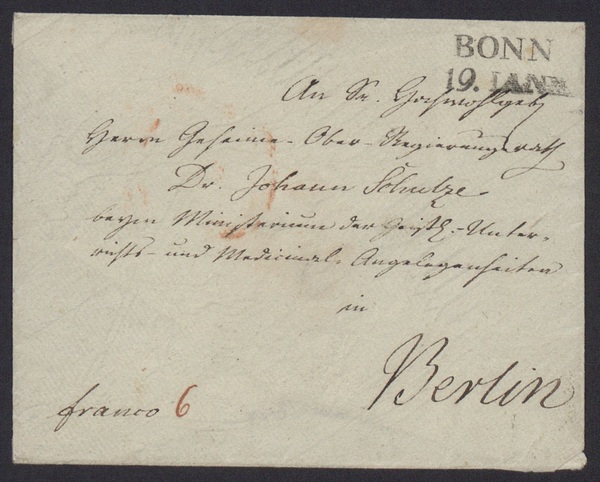 BONN
19. JANR
An Sr. Hochwohlgeb
Herrn Geheime-Ober-Regierungsrath
Dr. Johann Schulze
beym Ministerium der Geistl.-Unter-
richts- und Medicinal-Angelegenheiten
in
Berlin
franco 6